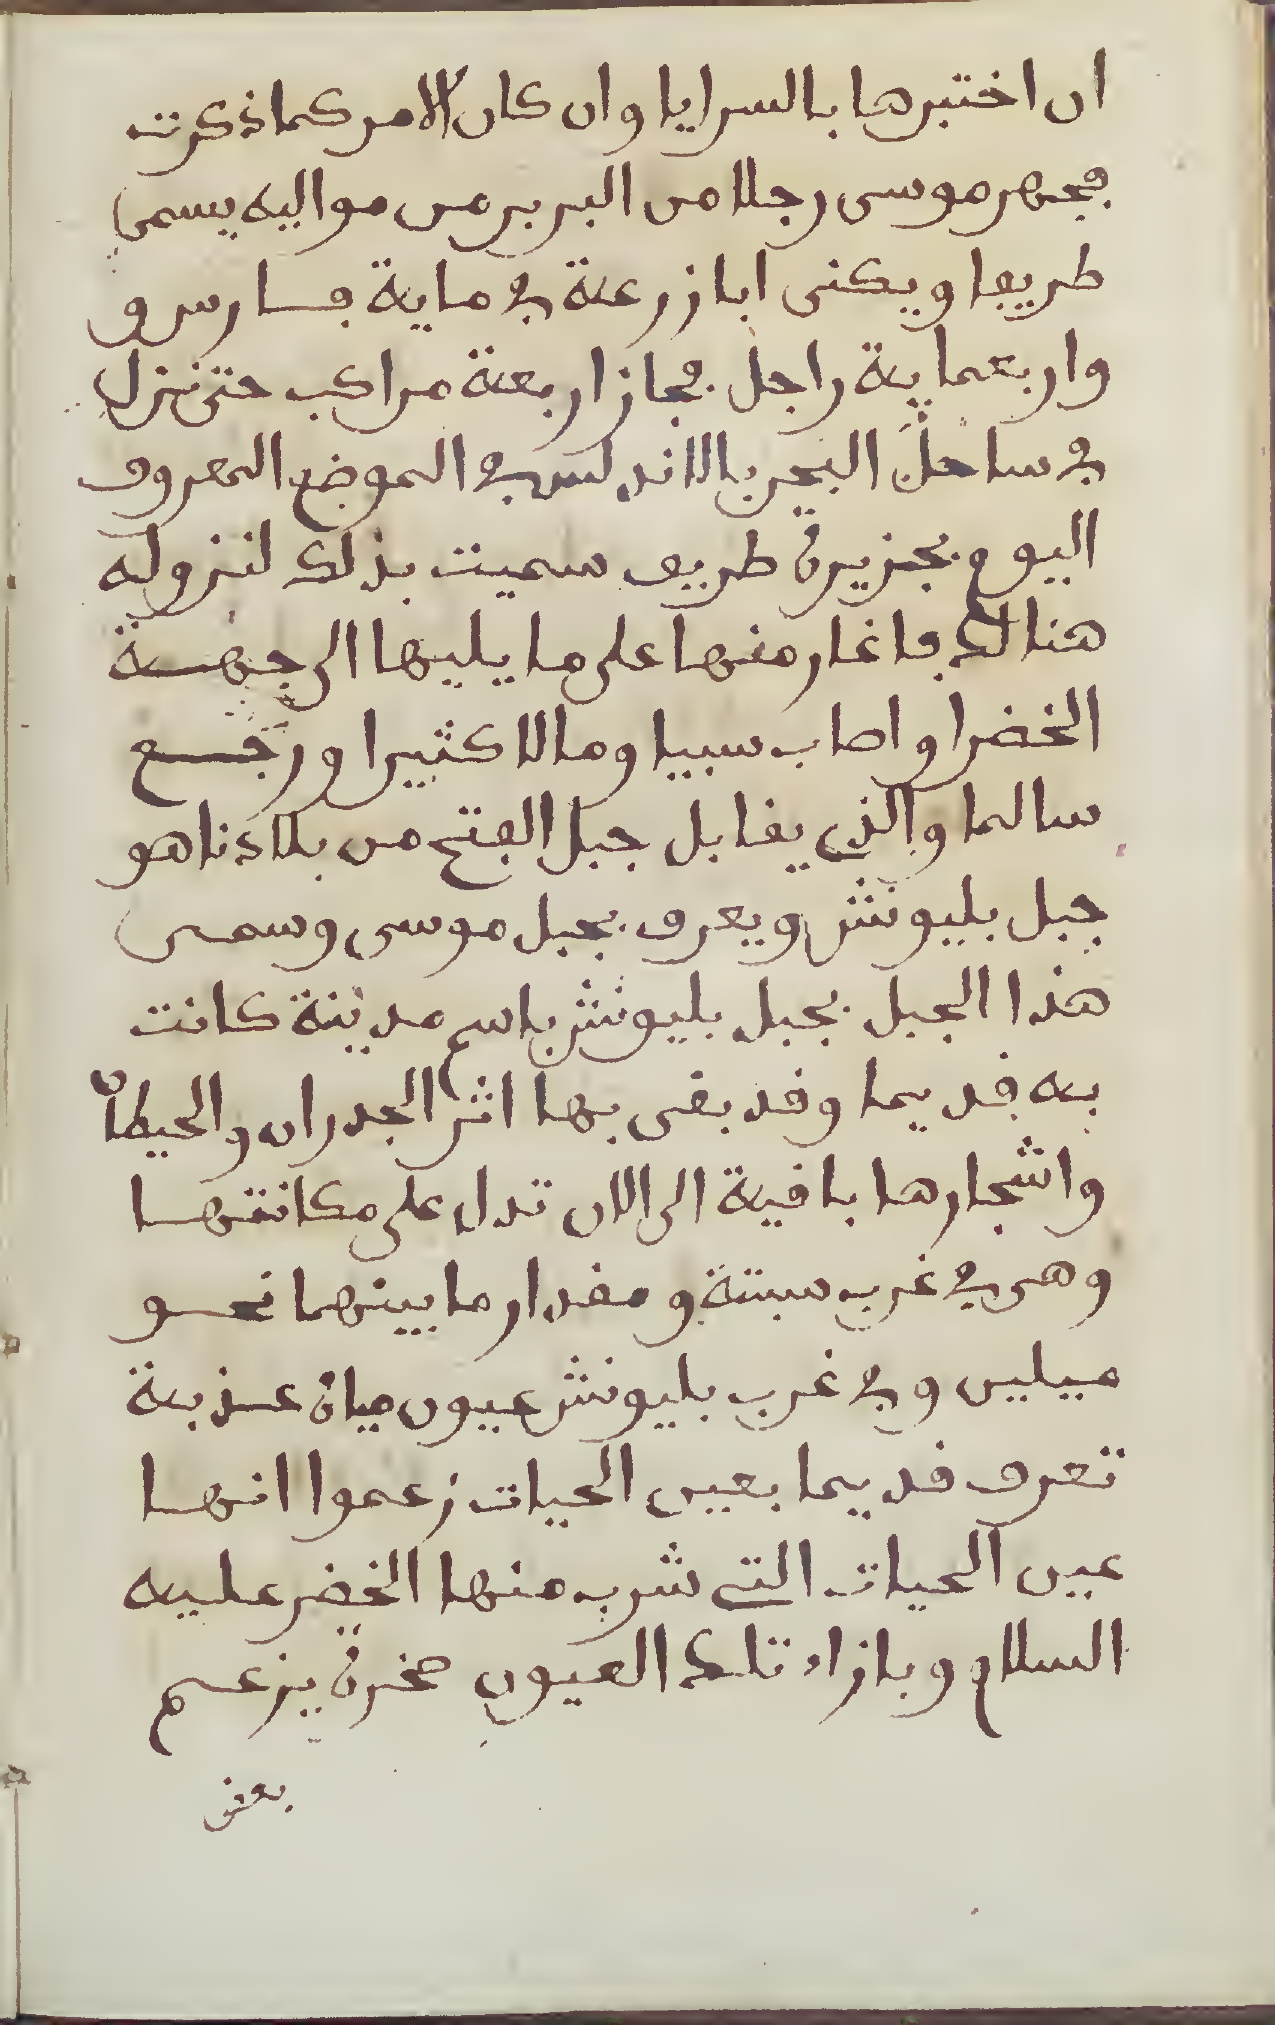 ان اختبرها بالسرايا وان كان الامر كما ذكرت
فجهر موسى رجلا من البربر من مواليه يسمى
طريفا ويكنى ابا زرعة في ماية فارس و
واربعماية راجل فجاز اربعة مراكب حتى نزل
في ساحل البحر بالاندلس في الموضع المعروف
اليوم بجزيرة طريف سميت بذلك لنزوله
هنالك فاغار منها على ما يليها الى جهة
الخضرا واصاب سبيا ومالا كثيرا ورجع
سالما والذي يقابل جبل الفتح من بلادنا هو
جبل بليونش ويعرف بجبل موسى وسمى
هذا الجبل بجبل بليونش باسم مدينة كانت
به قديما وقد بقى بها اثر الجدران والحيطان
واشجارها باقية الى الان تدل على مكانتها
وهي في غرب سبتة ومقدار ما بينهما نحو
ميلين وفي غرب بليونش عيون مياه عذبة
تعرف قديما بعين الحيات زعموا انها
عين الحيات التي شرب منها الخضر عليه
السلام وبازاء تلك العيون صخرة يزعم
بعض